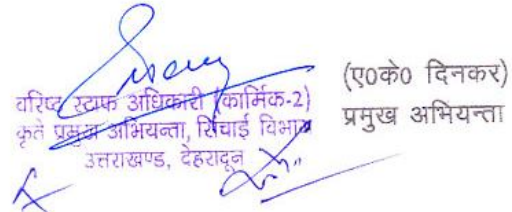 वरिष्ठ स्टाफ अधिकारी (कार्मिक-2)
कृते प्रमुख अभियन्ता, सिंचाई विभाग
उत्तराखण्ड, देहरादून
(ए0के0 दिनकर)
प्रमुख अभियन्ता